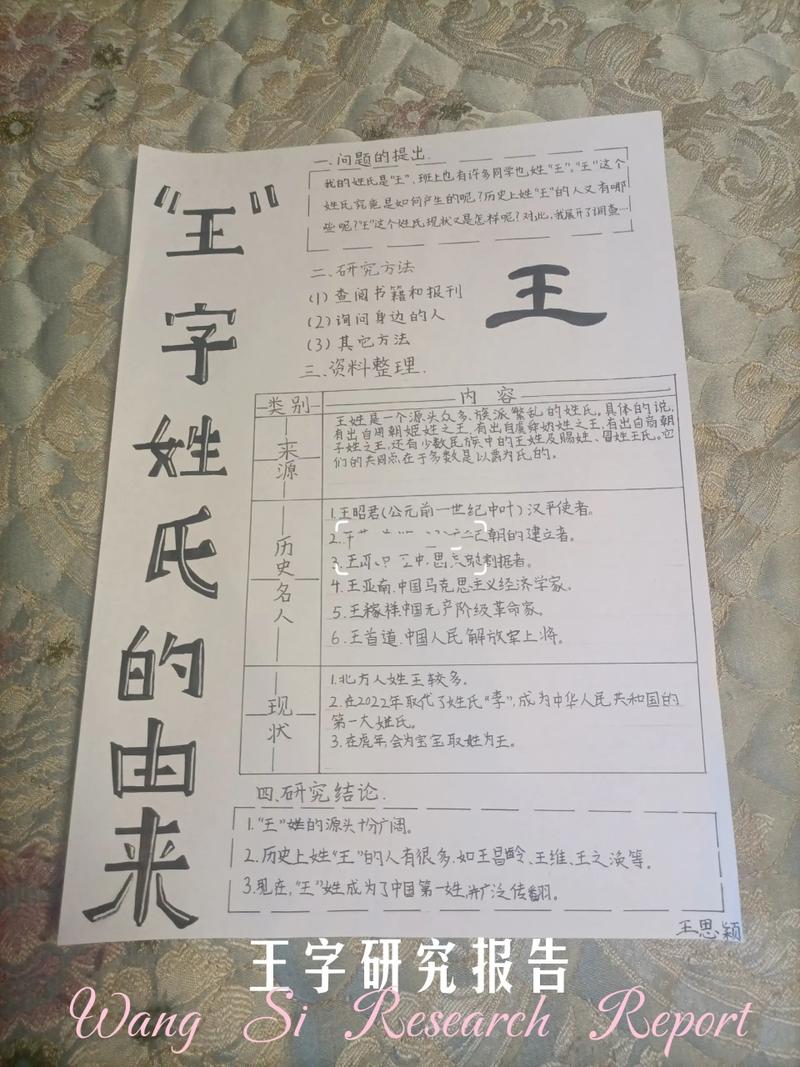 "王"字姓氏的由来
一.问题的提出.
我的姓氏是"王",班上也有许多同学也姓"王","王"这个
姓氏究竟是如何产生的呢?历史上姓"王"的人又有哪
些呢?"王"这个姓氏现状又是怎样呢?对此,我展开了调查…
二.研究方法
(1)查阅书籍和报刊
(2)询问身边的人
(3)其它方法
王
三.资料整理.
类别
内容
来源
王姓是一个源头众多、族派繁乱的姓氏。具体的说,
有出自周朝姬姓之王,有出自虞舜妫姓之王,有出自商朝
子姓之王,还有少数民族中的王姓及赐姓、冒姓王氏。它
们的共同点在于多数是以爵为氏的。
历史名人
1.王昭君(公元前一世纪中叶)汉平使者。
2.朝的建立者。
3.王割据者。
4.王亚南,中国马克思主义经济学家。
5.王稼祥,中国无产阶级革命家。
6.王首道,中国人民解放军上将。
现状
1.北方人姓王较多。
2.在2022年取代了姓氏"李",成为中华人民共和国的
第一大姓氏。
3.在虎年,会为宝宝取姓为王。
四.研究结论.
1."王"姓的源头十分广阔。
2.历史上姓"王"的人有很多,如王昌龄、王维、王之涣等。
3.现在,"王"姓成为了中国第一姓,并广泛传翻。
王思颖
王字研究报告
Wang Si Research Report